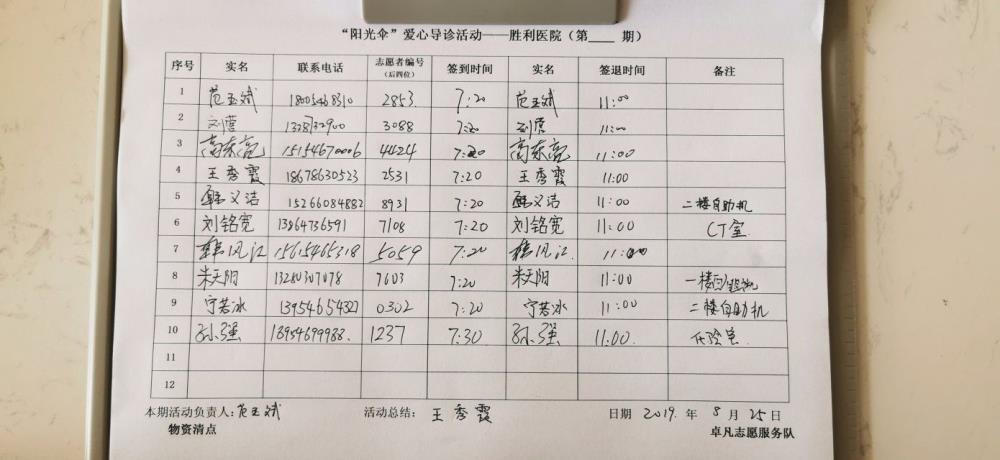 “阳光伞”爱心导诊活动——胜利医院（第____期）
序号 实名 联系电话 志愿者编号（后四位） 签到时间 实名 签退时间 备注
1 范玉斌 18005468310 2853 7:20 范玉斌 11:00
2 刘蕾 13287332900 3088 7:20 刘蕾 11:00
3 高东亮 15154670006 4424 7:20 高东亮 11:00
4 王秀霞 18678630523 2531 7:20 王秀霞 11:00
5 韩义洁 15266084882 8931 7:20 韩义洁 11:00 二楼自助机
6 刘铭宽 13864736591 7108 7:20 刘铭宽 11:00 CT室
7 韩凤江 15615465318 5059 7:20 韩凤江. 11:00
8 朱天阳 13280307078 7603 7:20 朱天阳 11:00 一楼自助机
9 宁若冰 13954654327 0302 7:20 宁若冰 11:00 二楼自助机
10 孙强 18954699988. 1237 7:30 孙强 11:00.
11
12
本期活动负责人：范玉斌 活动总结： 王秀霞 日期 2019. 年 8 月 25 日
物资清点 卓凡志愿服务队